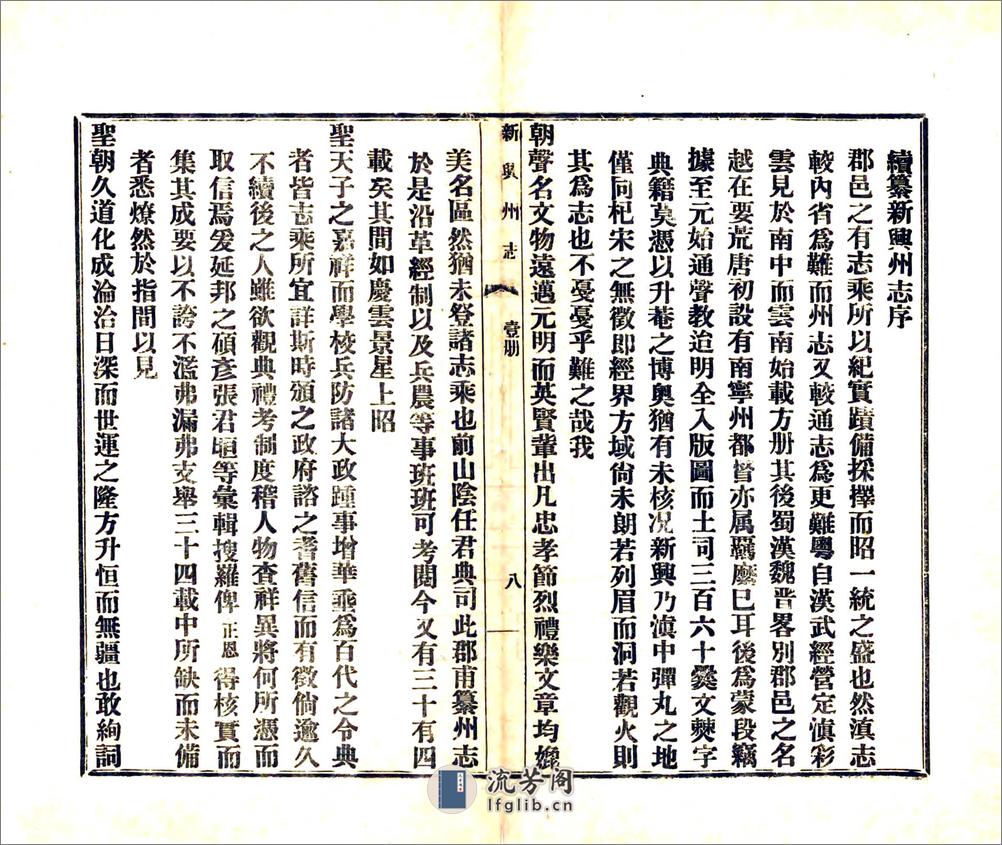 續纂新興州志序
郡邑之有志乘所以紀實蹟備採擇而昭一統之盛也然滇志
較內省爲難而州志又較通志爲更難粵自漢武經營定滇彩
雲見於南中而雲南始載方册其後蜀漢魏晉畧別郡邑之名
越在要荒唐初設有南寧州都督亦属羈縻巳耳後爲蒙段竊
據至元始通聲教迨明全入版圖而土司三百六十爨文僰字
典籍莫憑以升菴之博奧猶有未核况新興乃滇中彈丸之地
僅同杞宋之無徵即經界方域尙未朗若列眉而洞若觀火則
其爲志也不憂憂乎難之哉我
朝聲名文物遠邁元明而英賢輩出凡忠孝節烈禮樂文章均媲
新興州志
壹册
八
美名區然猶未登諸志乘也前山陰任君典司此郡甫纂州志
於是沿革經制以及兵農等事班班可考閱今又有三十有四
載矣其間如慶雲景星上昭
聖天子之嘉祥而學校兵防諸大政踵事增華乘爲百代之令典
者皆志乘所宜詳斯時頒之政府諮之耆舊信而有徵倘逾久
不續後之人雖欲觀典禮考制度稽人物查祥異將何所憑而
取信焉爰延邦之碩彥張君晅等彙輯搜羅俾正恩得核實而
集其成要以不誇不濫弗漏弗支舉三十四載中所缺而未備
者悉燎然於指間以見
聖朝久道化成淪洽日深而世運之隆方升恒而無疆也敢絢詞
流芳阁
lfglib.cn